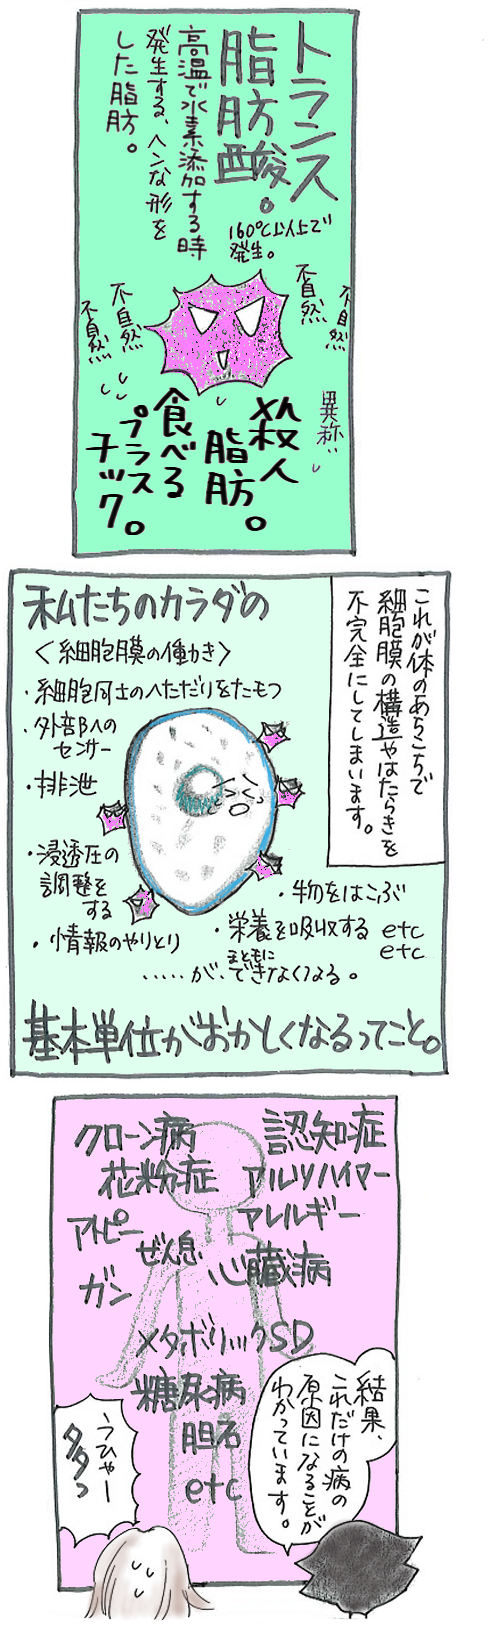 トランス
脂肪酸。
高温で水素添加する時
発生する、ヘンな形を
した脂肪。
160℃以上で
発生。
不自然
不自然
不自然
不自然
異称…
殺人
脂肪。
食べる
プラス
チック。
これが体のあちこちで
細胞膜の構造やはたらきを
不完全にしてしまいます。
私たちのカラダの
〈細胞膜の働き〉
・細胞同士のへだたりをたもつ
・外部への
センサー
・排泄
・浸透圧の
調整を
する
・情報のやりとり
・物をはこぶ
・栄養を吸収する etc
etc
……が、まともにできなくなる。
基本単位がおかしくなるってこと。
クローン病
認知症
花粉症
アルツハイマー
アトピー
アレルギー
ぜん息
心臓病
ガン
メタボリックSD
糖尿病
胆石
etc
結果、
これだけの病の
原因になることが
わかっています。
うひゃー
タタっ